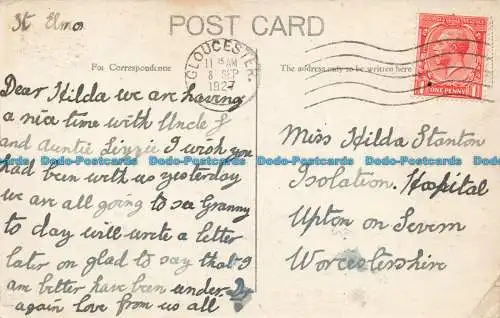 St Elmo
POST CARD
For Correspondence
The address only to be written here
GLOUCESTER
11 AM
8 SEP
1927
ONE PENNY
Dear Hilda we are having
a nice time with Uncle J
and Auntie Lizzie I wish you
had been with us yesterday
we are all going to see Granny
to day will write a letter
later on glad to say that I
am better have been under
again love from us all
Miss Hilda Stanton
Isolation Hospital
Upton on Severn
Worcestershire
Dodo-Postcards Dodo-Postcards Dodo-Postcards Dodo-Postcards